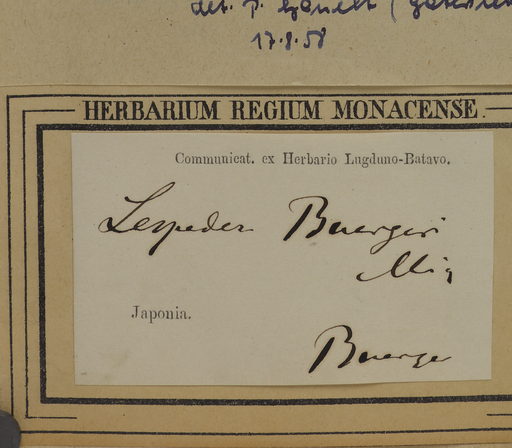 det. P. Hanelt (Gatersleb
17.8.58
HERBARIUM REGIUM MONACENSE.
Communicat. ex Herbario Lugduno-Batavo.
Lespedeza Buergeri
Miq
Japonia.
Buerger